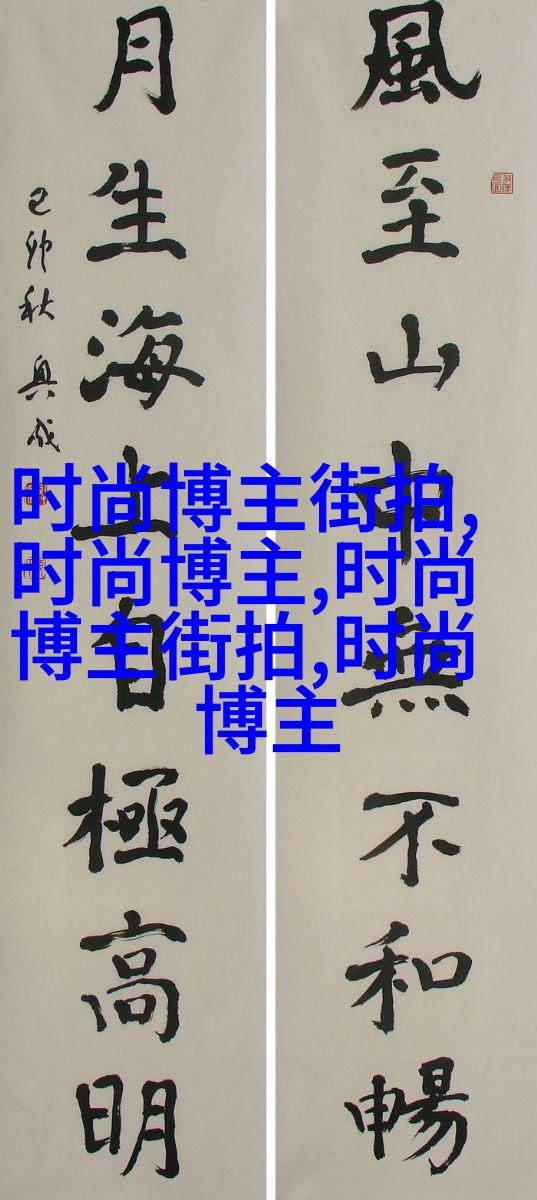 風至山中無不和暢
月生海上自極高明
己卯秋 興成
时尚博主街拍,
时尚博主,时尚
博主街拍,时尚
博主